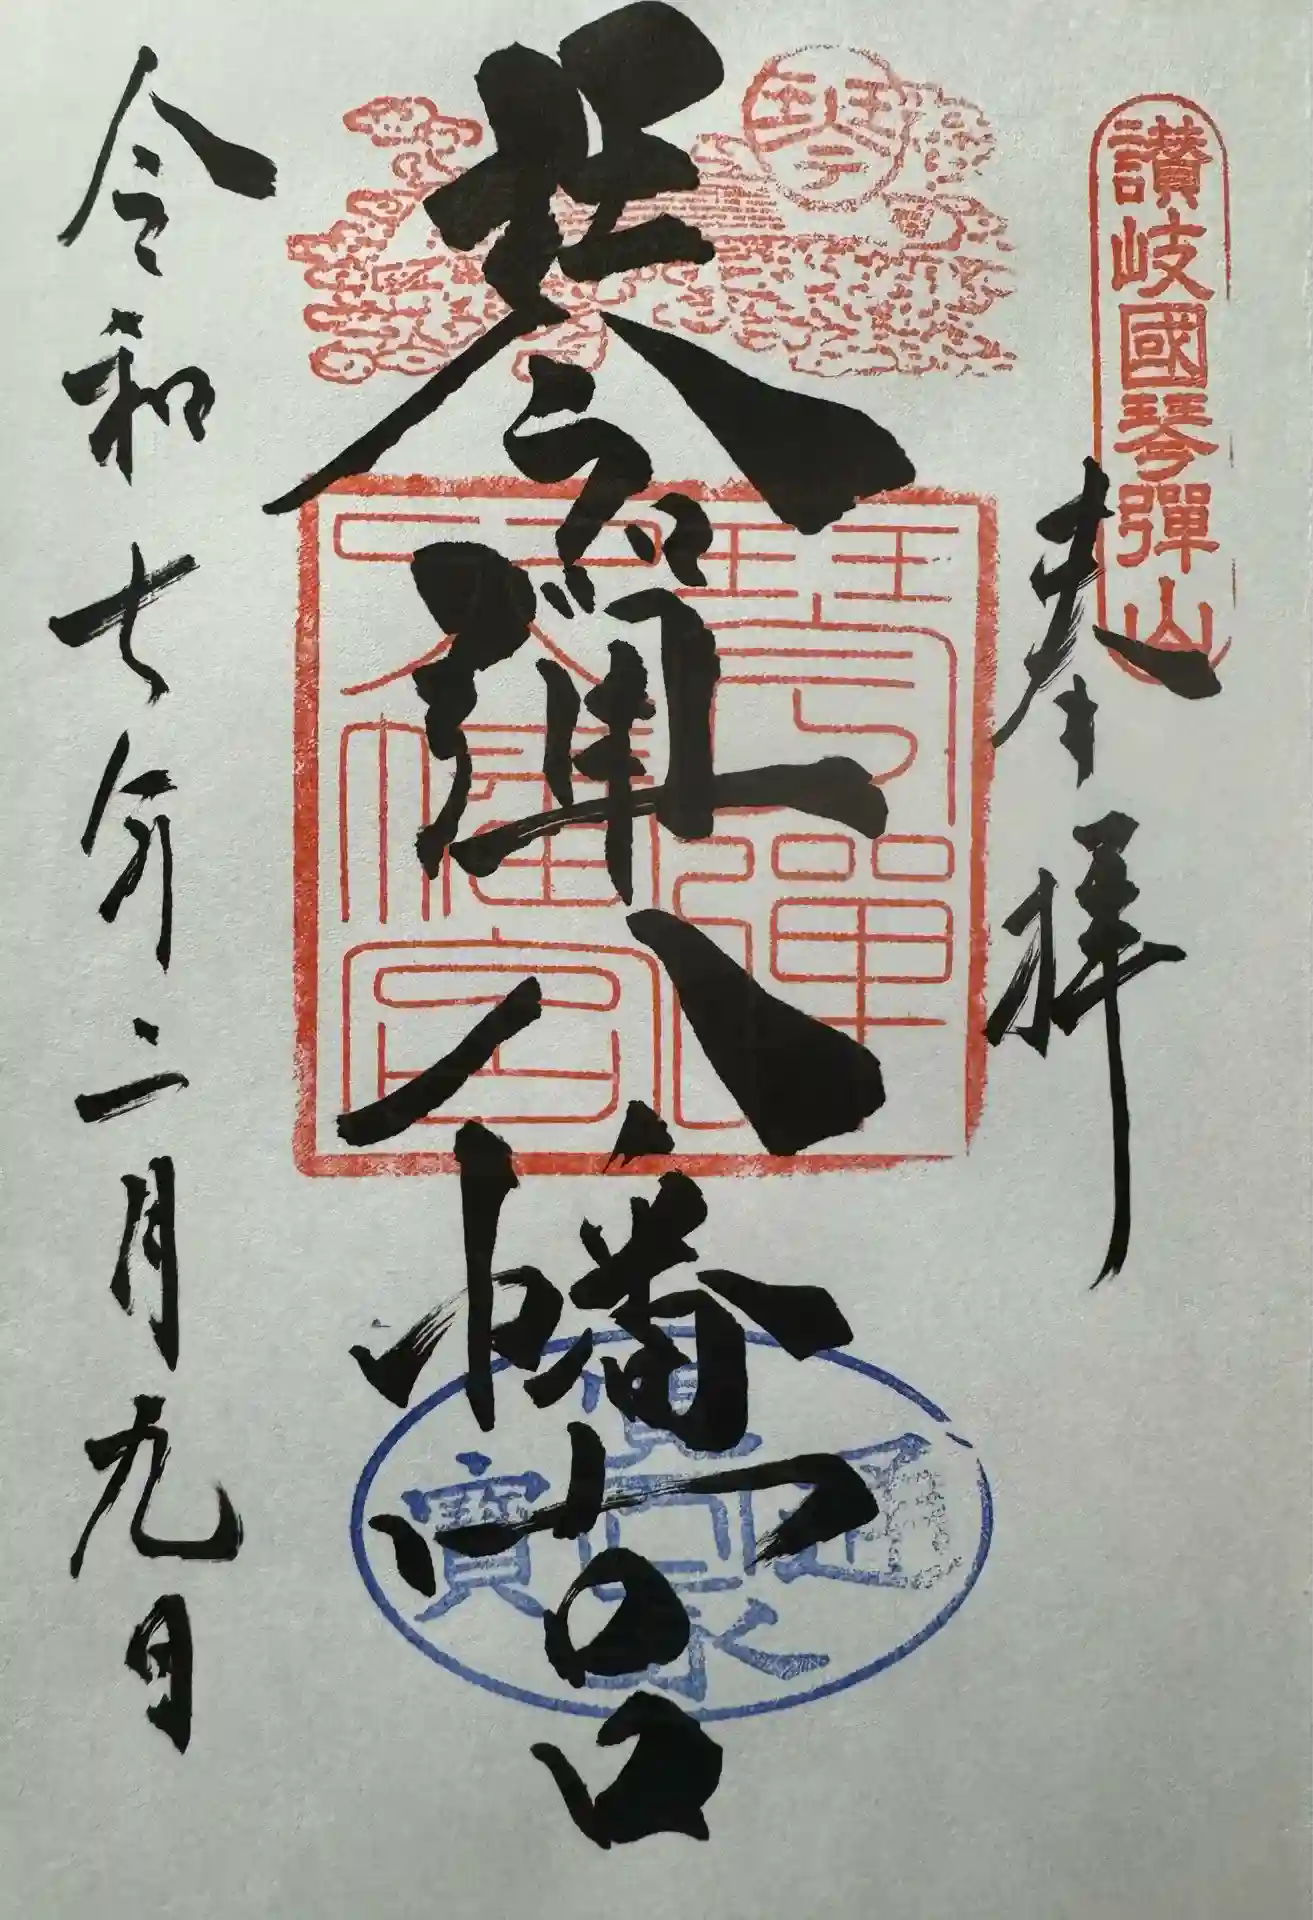 讃岐國琴彈山
奉拝
琴弾八幡宮
琴
琴彈
八幡宮
寛永通寳
令和七年二月九日